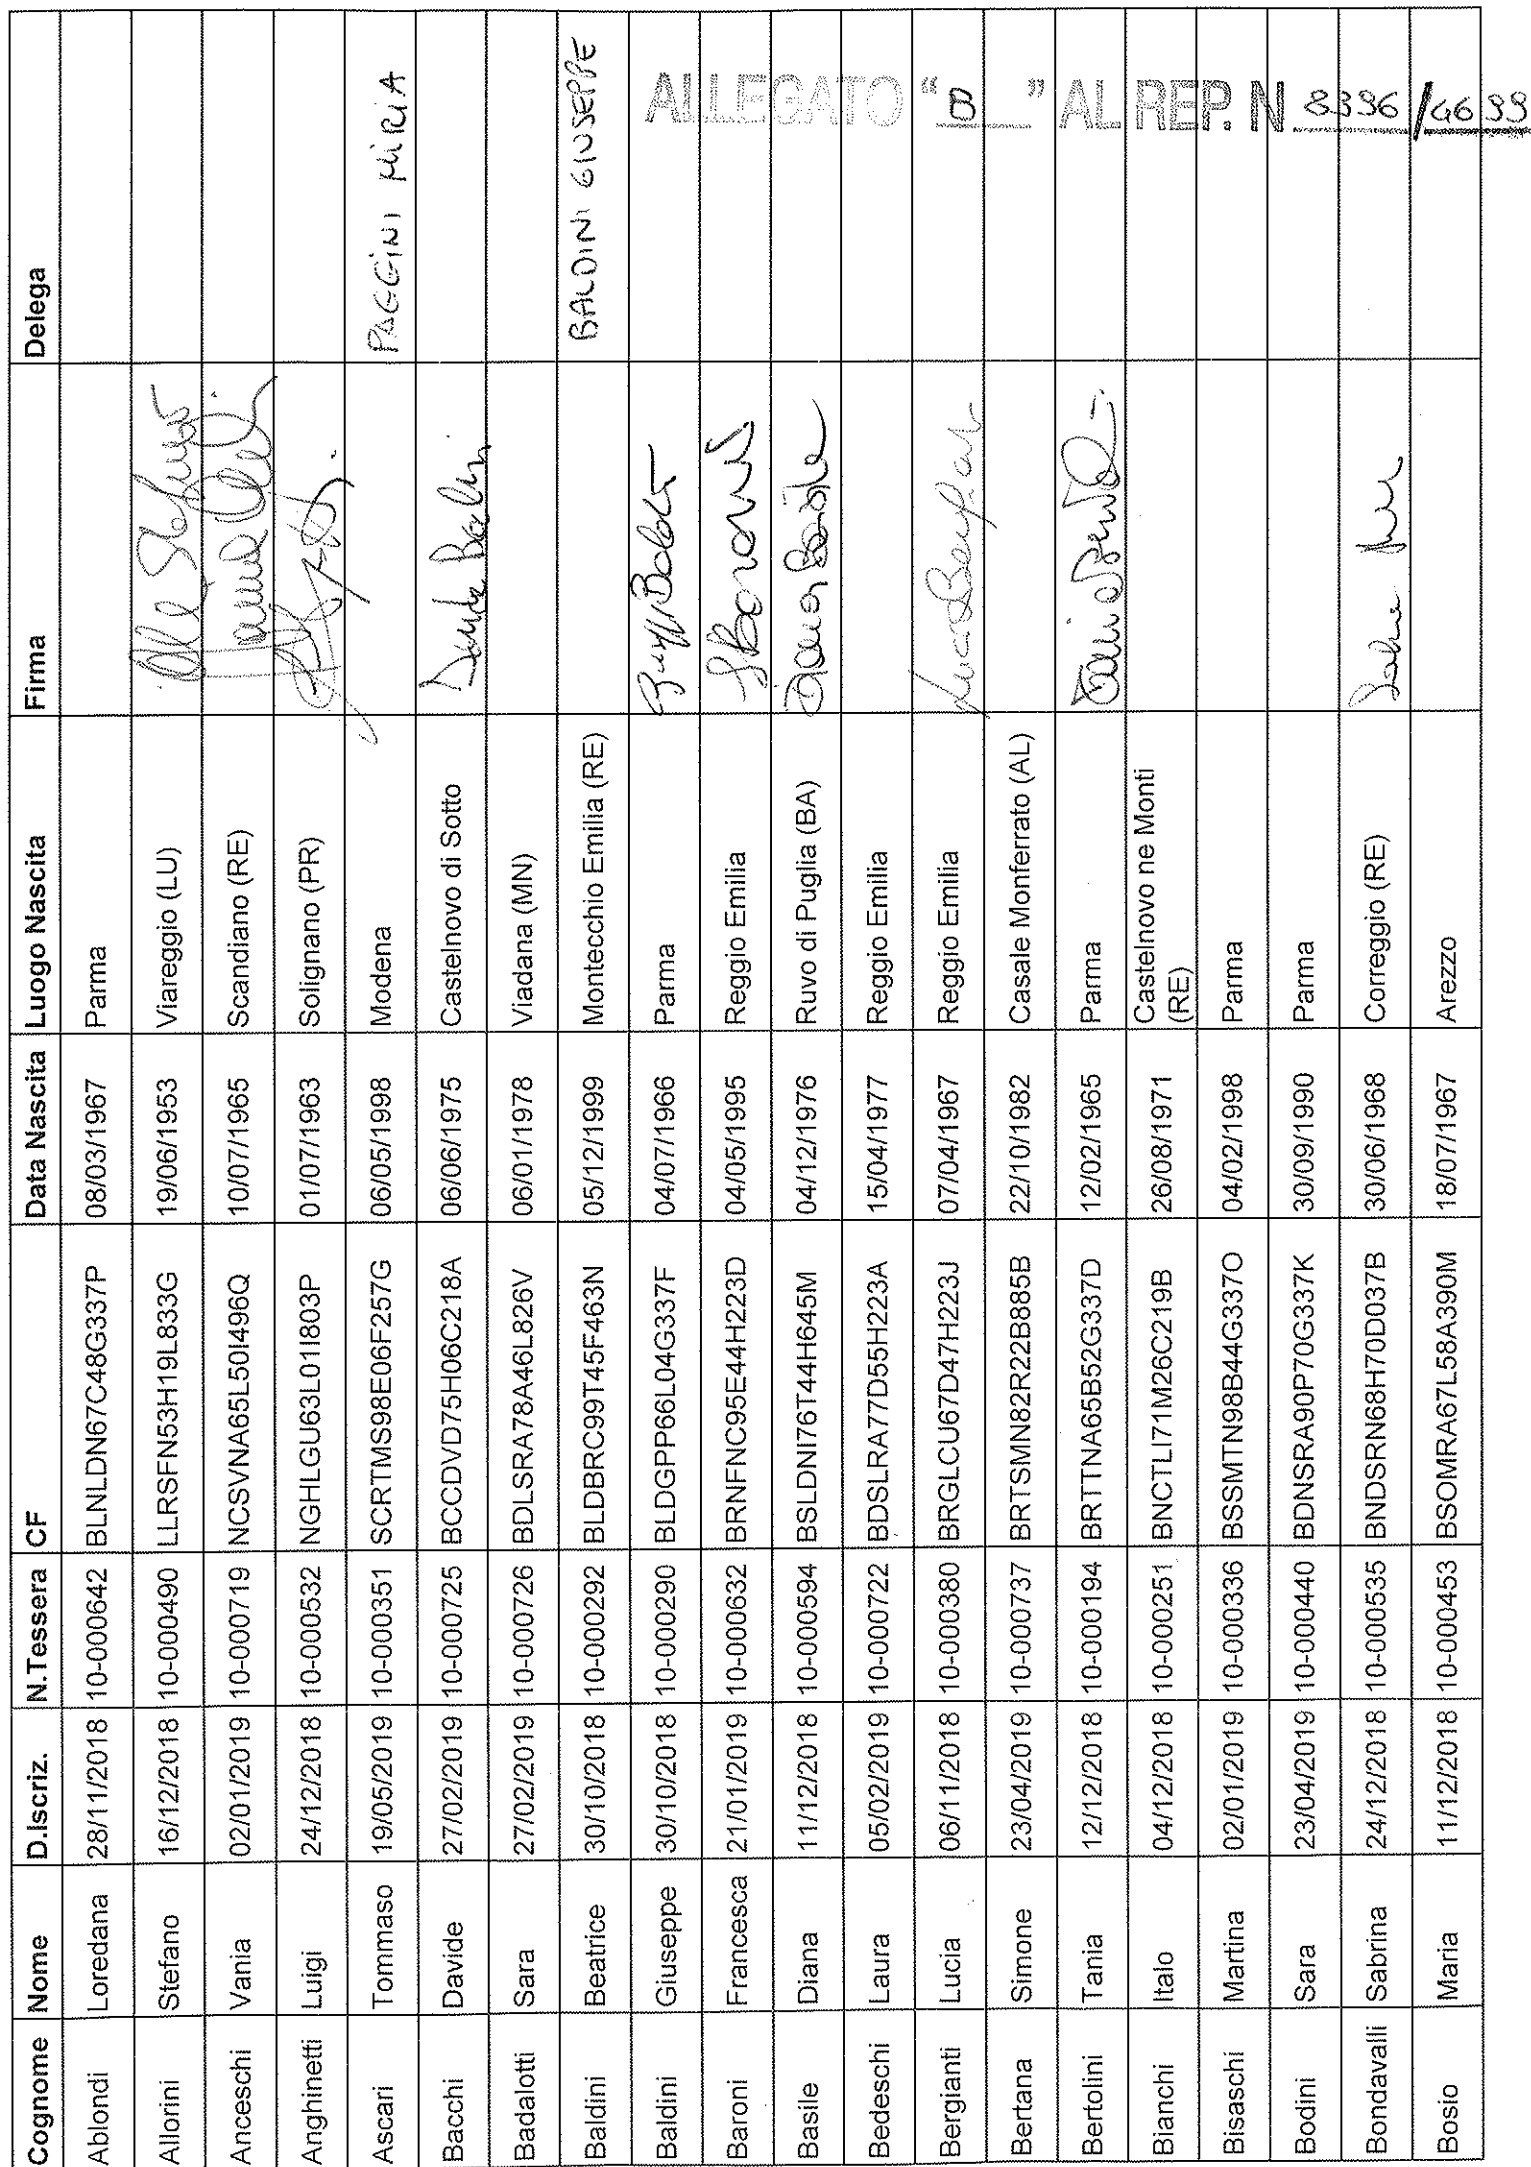 ALLEGATO "B" AL REP. N 8396/4699
Cognome Nome D.Iscriz. N.Tessera CF Data Nascita Luogo Nascita Firma Delega
Ablondi Loredana 28/11/2018 10-000642 BLNLDN67C48G337P 08/03/1967 Parma
Allorini Stefano 16/12/2018 10-000490 LLRSFN53H19L833G 19/06/1953 Viareggio (LU)
Anceschi Vania 02/01/2019 10-000719 NCSVNA65L50I496Q 10/07/1965 Scandiano (RE)
Anghinetti Luigi 24/12/2018 10-000532 NGHLGU63L01I803P 01/07/1963 Solignano (PR)
Ascari Tommaso 19/05/2019 10-000351 SCRTMS98E06F257G 06/05/1998 Modena PAGGINI MIRIA
Bacchi Davide 27/02/2019 10-000725 BCCDVD75H06C218A 06/06/1975 Castelnovo di Sotto Davide Bacchi
Badalotti Sara 27/02/2019 10-000726 BDLSRA78A46L826V 06/01/1978 Viadana (MN)
Baldini Beatrice 30/10/2018 10-000292 BLDBRC99T45F463N 05/12/1999 Montecchio Emilia (RE) BALDINI GIUSEPPE
Baldini Giuseppe 30/10/2018 10-000290 BLDGPP66L04G337F 04/07/1966 Parma
Baroni Francesca 21/01/2019 10-000632 BRNFNC95E44H223D 04/05/1995 Reggio Emilia
Basile Diana 11/12/2018 10-000594 BSLDNI76T44H645M 04/12/1976 Ruvo di Puglia (BA) Diana Basile
Bedeschi Laura 05/02/2019 10-000722 BDSLRA77D55H223A 15/04/1977 Reggio Emilia
Bergianti Lucia 06/11/2018 10-000380 BRGLCU67D47H223J 07/04/1967 Reggio Emilia
Bertana Simone 23/04/2019 10-000737 BRTSMN82R22B885B 22/10/1982 Casale Monferrato (AL)
Bertolini Tania 12/12/2018 10-000194 BRTTNA65B52G337D 12/02/1965 Parma
Bianchi Italo 04/12/2018 10-000251 BNCTLI71M26C219B 26/08/1971 Castelnovo ne Monti
(RE)
Bisaschi Martina 02/01/2019 10-000336 BSSMTN98B44G337O 04/02/1998 Parma
Bodini Sara 23/04/2019 10-000440 BDNSRA90P70G337K 30/09/1990 Parma
Bondavalli Sabrina 24/12/2018 10-000535 BNDSRN68H70D037B 30/06/1968 Correggio (RE)
Bosio Maria 11/12/2018 10-000453 BSOMRA67L58A390M 18/07/1967 Arezzo